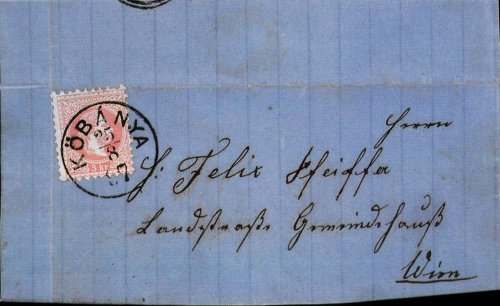 KŐBÁNYA
25
3 kr
Herrn
H: Felix Pfeiffer
Landstraße Gemeindehauß
Wien